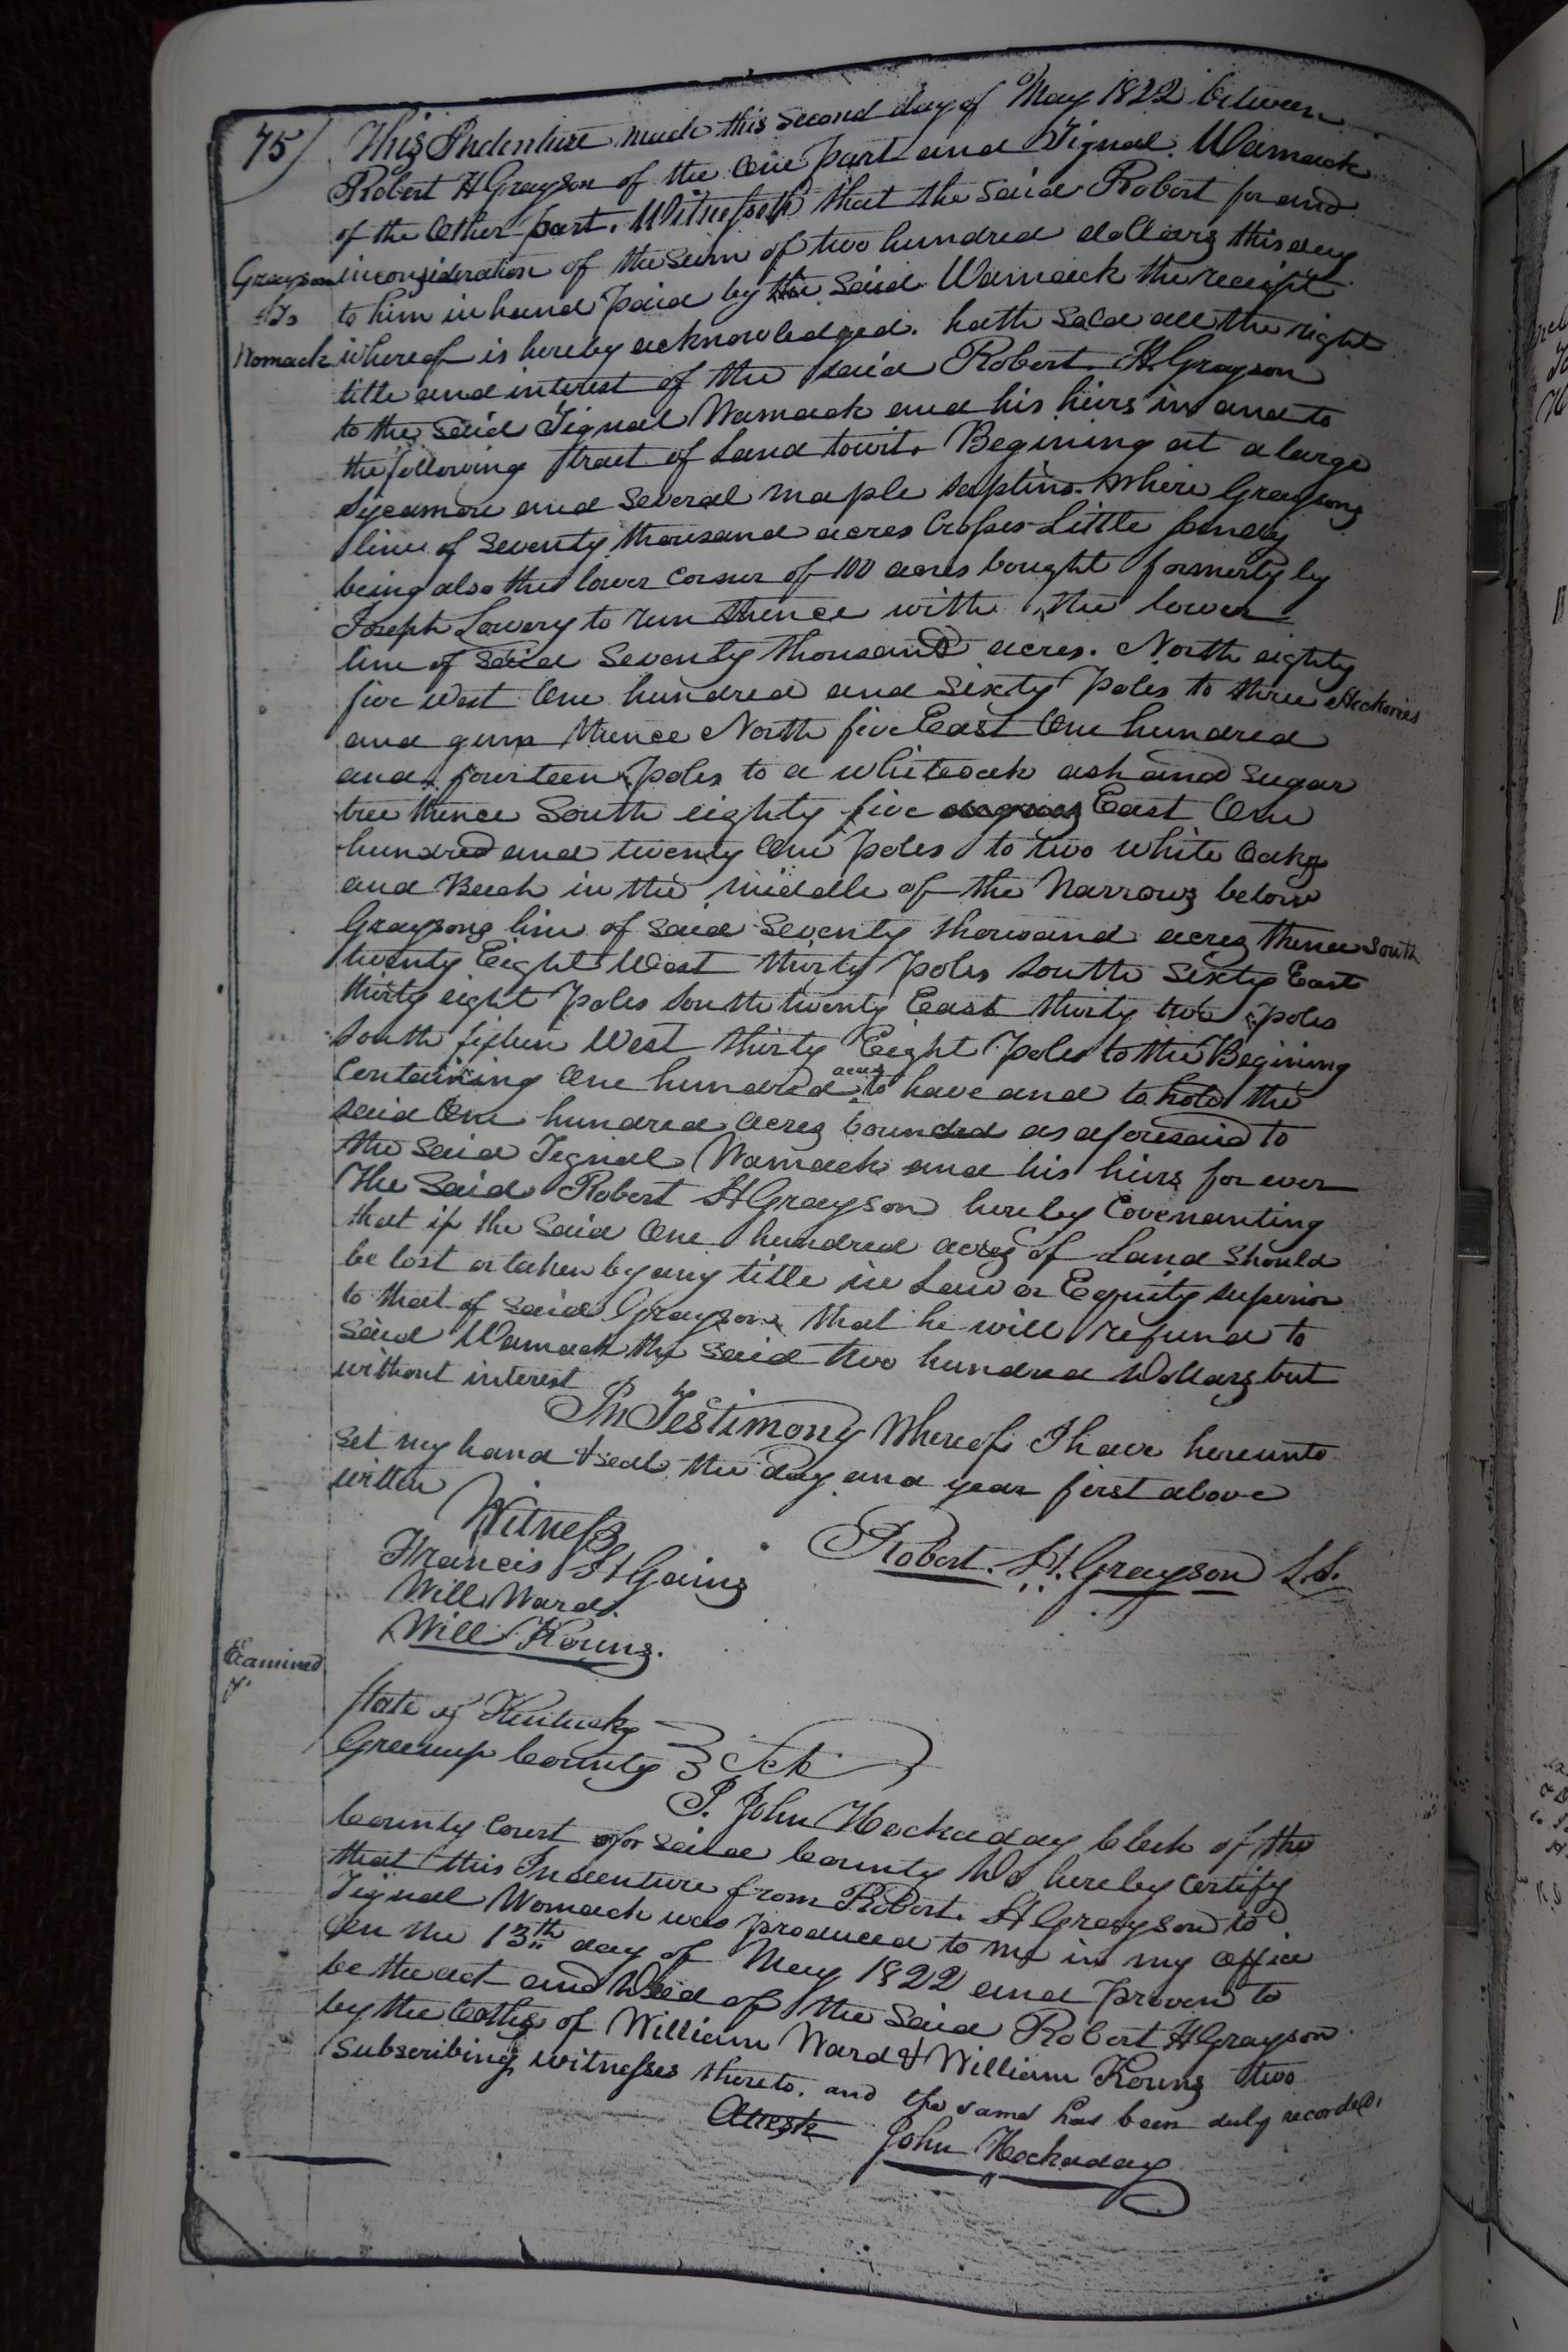 75/
This Indenture made this second day of May 1822 between
Robert H Grayson of the One part and Tignal Wamack
of the Other part. Witnesseth that the said Robert for and
Grayson
To
Womack
inconsideration of the sum of two hundred dollars this day
to him in hand paid by the said Wamack the receipt
whereof is hereby acknowledged. hath sold all the right
title and interest of the said Robert H. Grayson
to the said Tignal Wamack and his heirs in and to
the following tract of Land towit. Begining at a large
Sycamore and several maple saplins. Where Graysons
line of seventy thousand acres Crosses Little Sandy
being also the lower corner of 100 acres bought formerly by
Joseph Lowery to run thence with the lower
line of said Seventy thousand acres. North eighty
five West One hundred and sixty poles to three Hickories
and gum thence North five East One hundred
and fourteen poles to a whiteoak ash and sugar
tree thence South eighty five East One
hundred and twenty One poles to two white Oaks
and Beech in the middle of the Narrows below
Graysons line of said Seventy thousand acres thence South
twenty Eight West thirty poles south sixty East
thirty eight poles south twenty East thirty two poles
South fifteen West thirty Eight poles to the Begining
Containing One hundred acres to have and to hold the
said One hundred acres bounded as aforesaid to
the said Tignal Wamack and his heirs for ever
The said Robert H Grayson hereby Covenanting
that if the said One hundred acres of Land should
be lost or taken by any title in Law or Equity superior
to that of said Grayson that he will refund to
said Wamack the said two hundred Dollars but
without interest
In Testimony Whereof I have hereunto
set my hand & seal the day and year first above
written
Witness
Robert. H. Grayson L.S.
Francis H Gains
Will Ward
Will Kouns.
Examined
State of Kentucky
Greenup County Sct
I. John Hockaday Clerk of the
County Court for said County Do hereby certify
that this Indenture from Robert. H Grayson to
Tignal Womack was produced to me in my office
On the 13th day of May 1822 and proven to
be the act and Deed of the said Robert H Grayson
by the Oaths of William Ward & William Kouns two
subscribing witnesses thereto. and the same has been duly recorded.
Attest John Hockaday